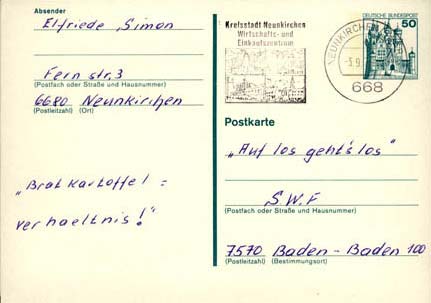 Absender
Elfriede Simon
Fern str. 3
(Postfach oder Straße und Hausnummer)
6680 Neunkirchen
(Postleitzahl) (Ort)
„Bratkartoffel =
verhaeltnis!"
Kreisstadt Neunkirchen
Wirtschafts- und
Einkaufszentrum
NEUNKIRCHEN
-5.9.
668
DEUTSCHE BUNDESPOST
50
Postkarte
„Auf los geht's los"
S.W.F
(Postfach oder Straße und Hausnummer)
7570 Baden-Baden 100
(Postleitzahl) (Bestimmungsort)